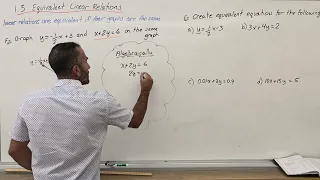 1.5 Equivalent Linear Relations
linear relations are equivalent if their graphs are the same
Ex. Graph y = -1/2x+3 and x+2y=6 on the same
graph
Algebraically
x+2y=6
2y =
Create equivalent equation for the following
b) 3x+4y=2
c) 0.01x+2y=0.4